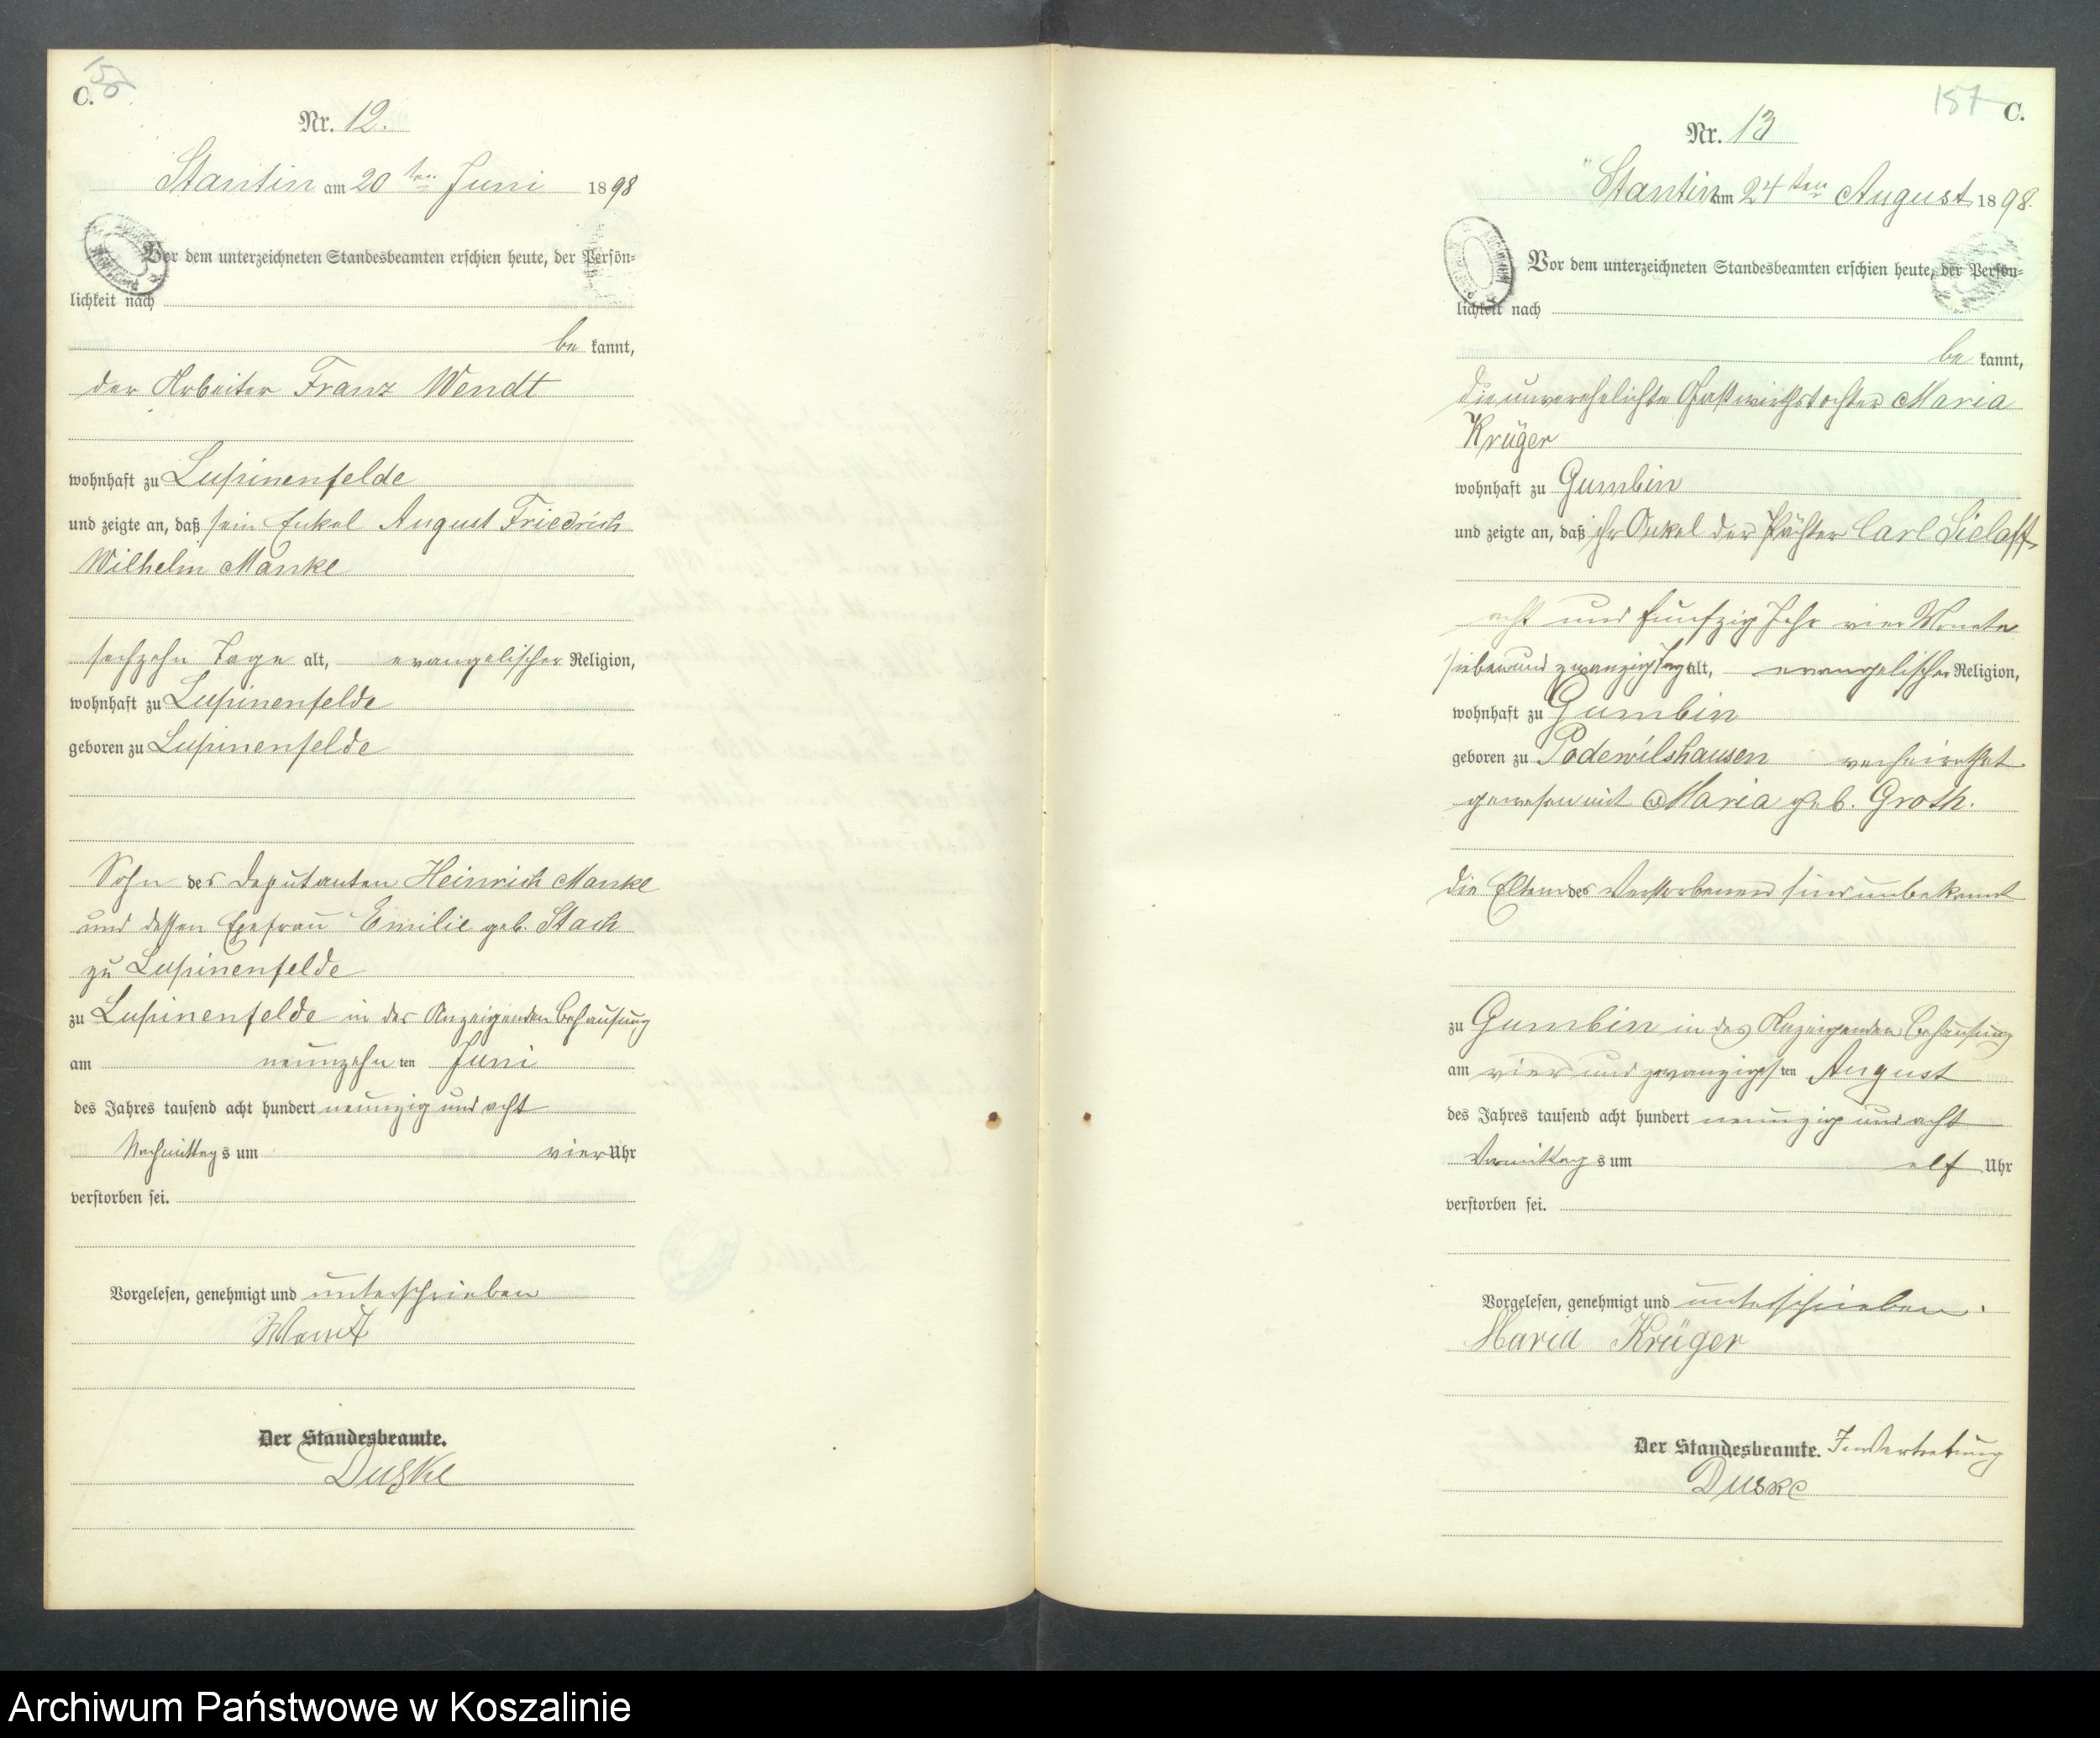 156
C.
Nr. 12.
Stantin am 20ten Juni 1898
Vor dem unterzeichneten Standesbeamten erschien heute, der Persön=
lichkeit nach
be kannt,
der Arbeiter Franz Wendt
wohnhaft zu Lupinenfelde
und zeigte an, daß sein Enkel August Friedrich
Wilhelm Manke
sechzehn Tage alt, evangelischer Religion,
wohnhaft zu Lupinenfelde
geboren zu Lupinenfelde
Sohn des Deputanten Heinrich Manke
und dessen Ehefrau Emilie geb. Stach
zu Lupinenfelde
zu Lupinenfelde in des Anzeigenden Behausung
am neunzehn ten Juni
des Jahres tausend acht hundert neunzig und acht
Nachmittags um vier Uhr
verstorben sei.
Vorgelesen, genehmigt und unterschrieben
Wendt
Der Standesbeamte.
Duske
157 C.
Nr. 13
Stantin am 24ten August 1898.
Vor dem unterzeichneten Standesbeamten erschien heute, der Persön=
lichkeit nach
be kannt,
die unverehelichte Gastwirthstochter Maria
Krüger
wohnhaft zu Gumbin
und zeigte an, daß ihr Onkel der Pächter Carl Sielaff
acht und funfzig Jahr vier Monate
sieben und zwanzig Tag alt, evangelischer Religion,
wohnhaft zu Gumbin
geboren zu Podewilshausen verheirathet
gewesen mit Maria geb. Groth.
die Eltern des Verstorbenen sind unbekannt
zu Gumbin in des Anzeigenden Behausung
am vier und zwanzigs ten August
des Jahres tausend acht hundert neunzig und acht
Vormittags um elf Uhr
verstorben sei.
Vorgelesen, genehmigt und unterschrieben.
Maria Krüger
Der Standesbeamte. In Vertretung
Duske
Archiwum Państwowe w Koszalinie